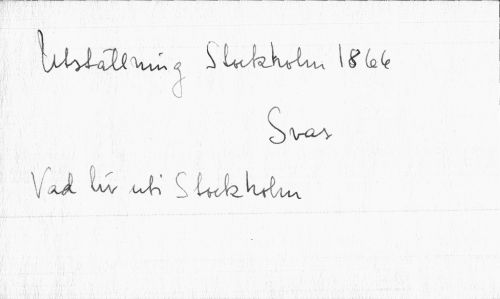 Utställning Stockholm 1866
Svar
Vad liv uti Stockholm